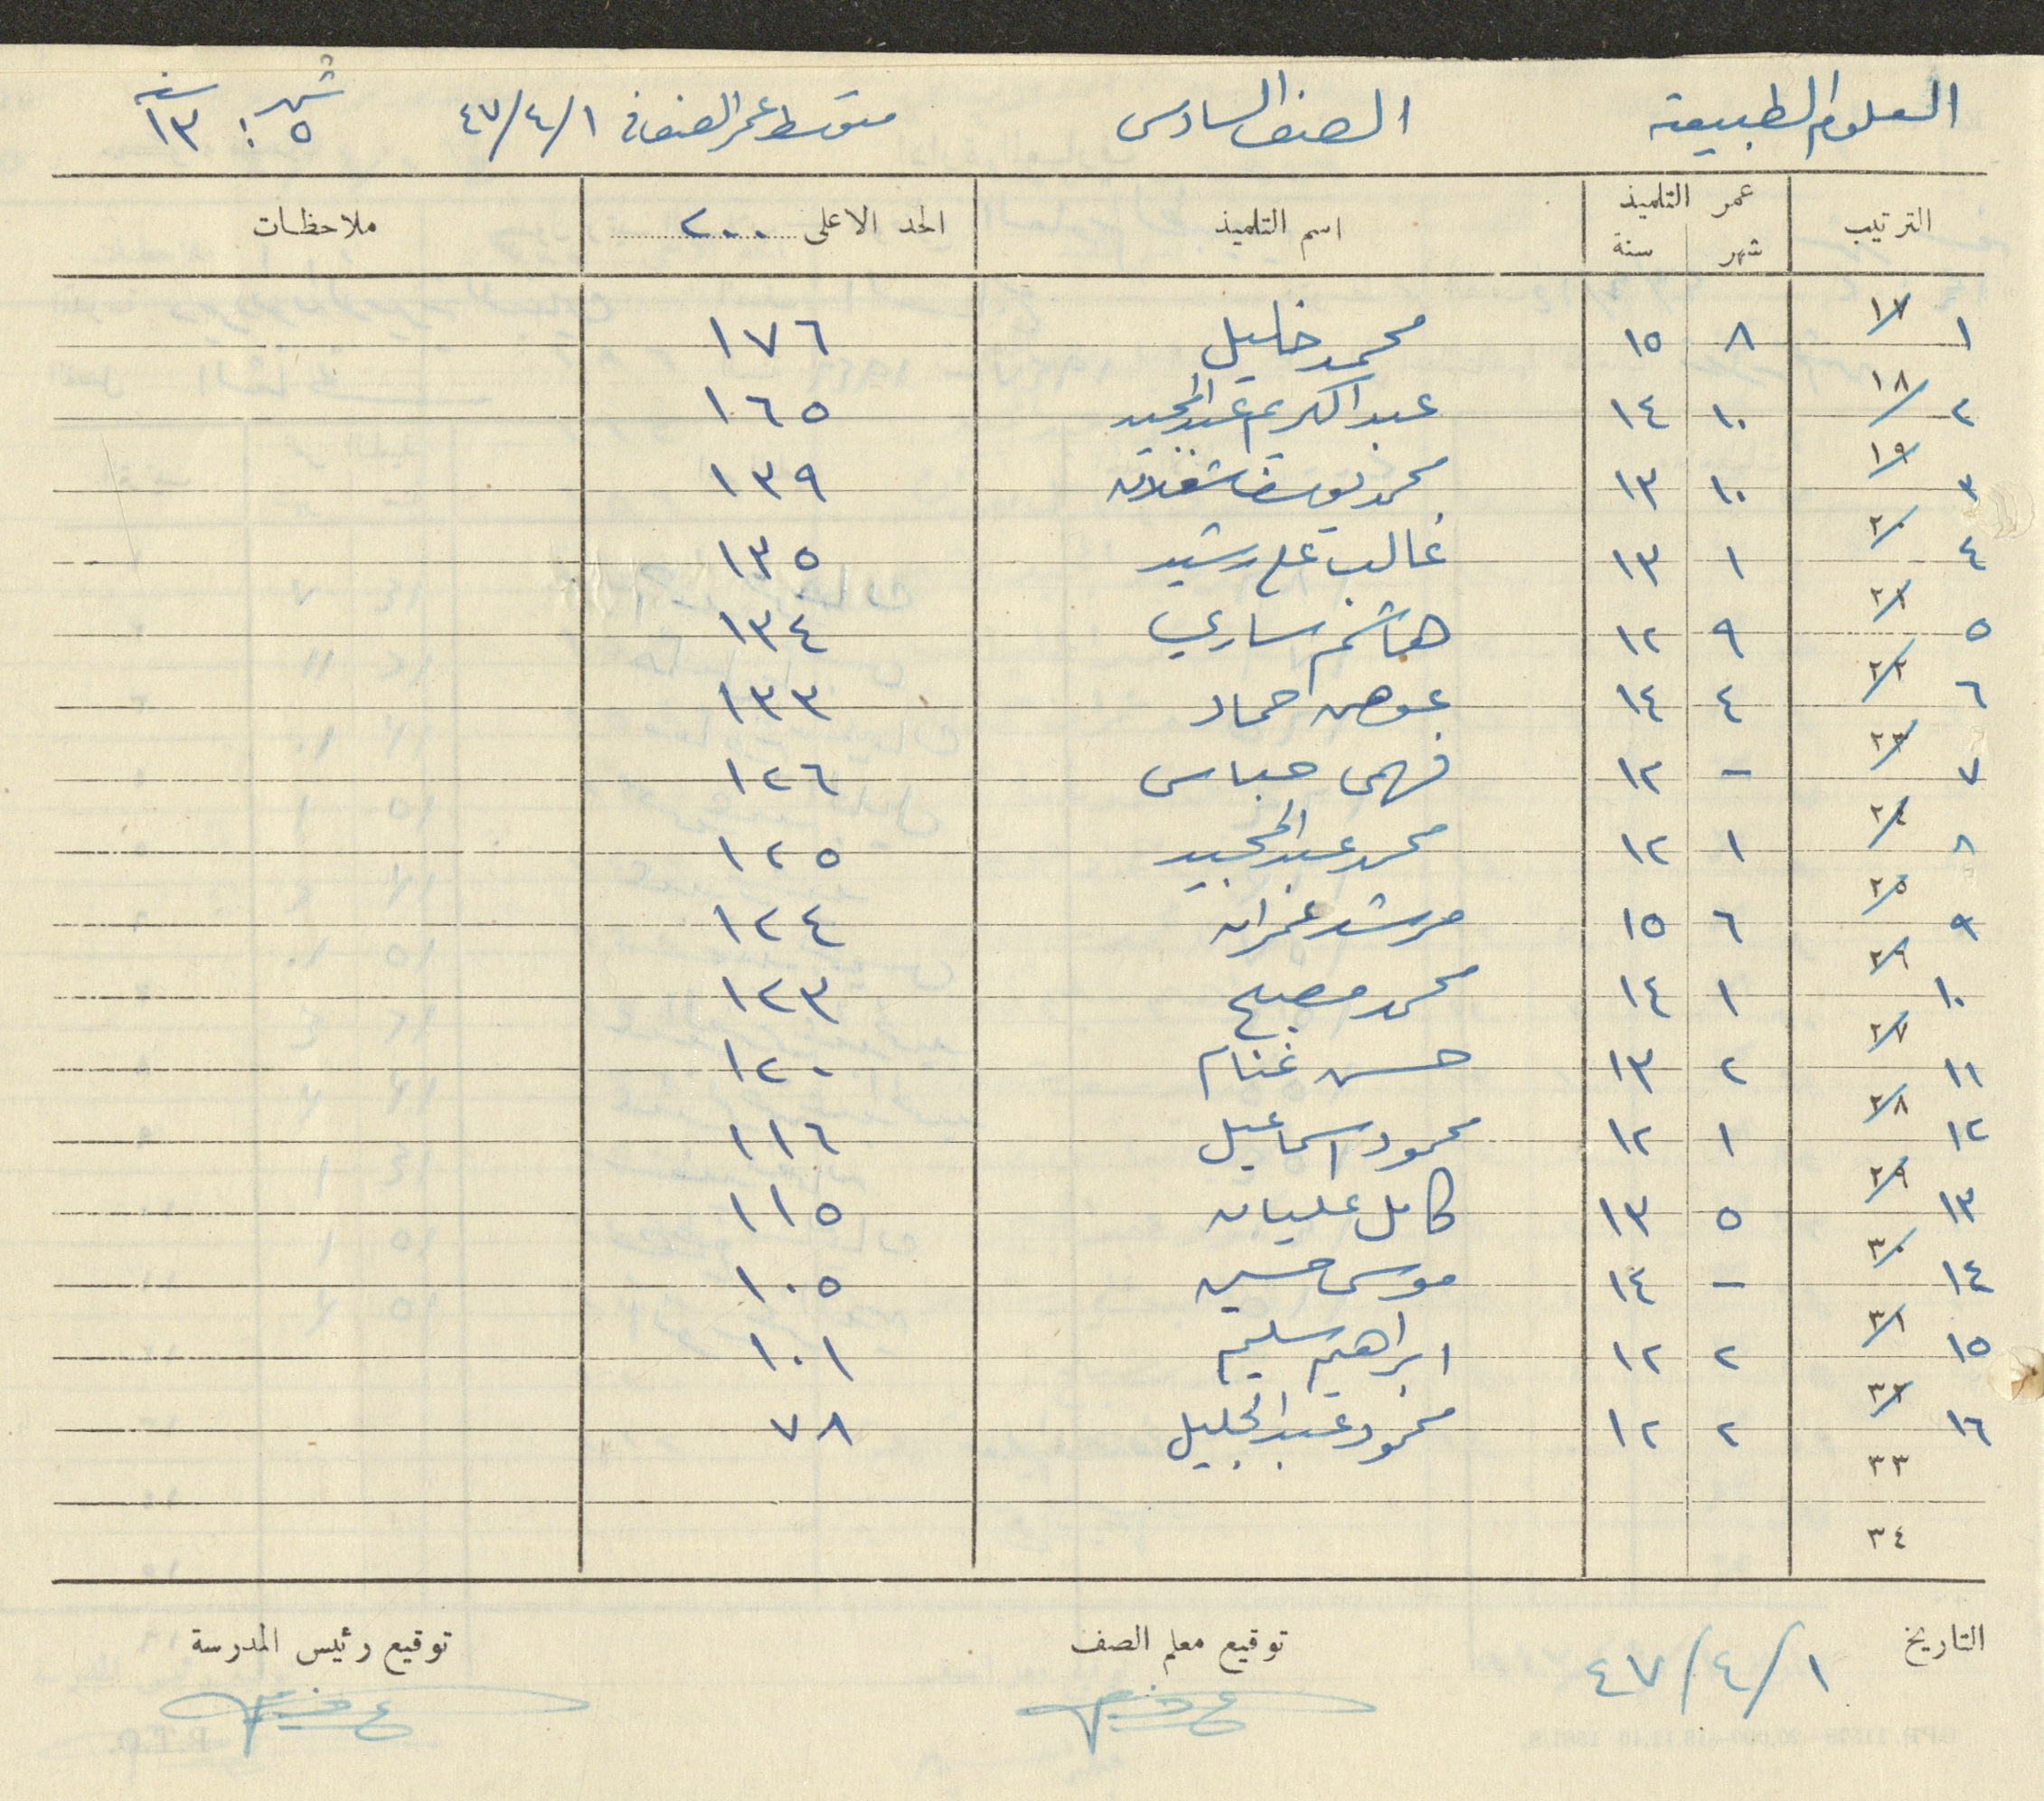 العلوم الطبيعية الصف السادس متوسط عمر الصف في ٤٧/٤/١ شهر ٥ : سنة ١٣
الترتيب عمر التلميذ شهر سنة اسم التلميذ الحد الاعلى ٢٠٠ ملاحظات
١ ١٧ ٨ ١٥ محمد خليل ١٧٦
٢ ١٨ ١٠ ١٤ عبد الكريم عبد المجيد ١٦٥
٣ ١٩ ١٠ ١٣ محمد يوسف ١٣٩
٤ ٢٠ ١ ١٣ غالب علي رشيد ١٣٥
٥ ٢١ ٩ ١٢ هاشم ساري ١٣٤
٦ ٢٢ ٤ ١٤ عوض حماد ١٣٣
٧ ٢٣ - ١٢ فهمي عباس ١٢٦
٨ ٢٤ ١ ١٢ محمد عبد المجيد ١٢٥
٩ ٢٥ ٦ ١٥ مرشد عمران ١٢٤
١٠ ٢٦ ١ ١٤ محمد مصبح ١٢٣
١١ ٢٧ ٢ ١٣ حسن غنام ١٢٠
١٢ ٢٨ ١ ١٢ محمود اسماعيل ١١٦
١٣ ٢٩ ٥ ١٣ كامل عليان ١١٥
١٤ ٣٠ - ١٤ موسى حسين ١٠٥
١٥ ٣١ ٢ ١٢ ابراهيم سليم ١٠١
١٦ ٣٢ ٢ ١٢ محمود عبد الجليل ٧٨
٣٣
٣٤
التاريخ توقيع معلم الصف توقيع رئيس المدرسة
٤٧/٤/١